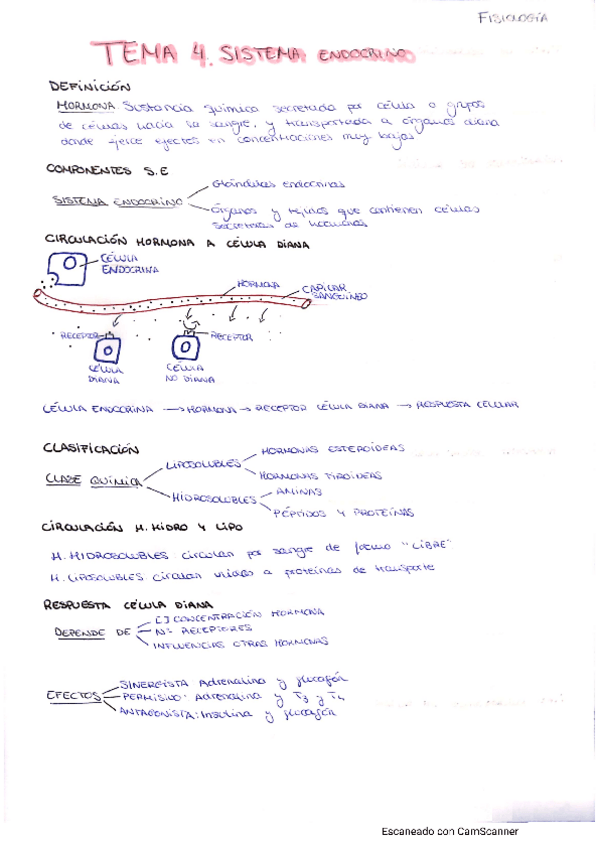 FISIOLOGÍA
TEMA 4. SISTEMA ENDOCRINO
DEFINICIÓN
HORMONA Sustancia química secretada por célula o grupos
de células hacia la sangre, y transportada a órganos diana
donde ejerce efectos en concentraciones muy bajas
COMPONENTES S.E
Glándulas endocrinas
SISTEMA ENDOCRINO
Órganos y tejidos que contienen células
secretoras de hormonas
CIRCULACIÓN HORMONA A CÉLULA DIANA
CÉLULA
ENDOCRINA
HORMONA
CAPILAR
SANGUÍNEO
RECEPTOR
RECEPTOR
CÉLULA
DIANA
CÉLULA
NO DIANA
CÉLULA ENDOCRINA → HORMONA → RECEPTOR CÉLULA DIANA → RESPUESTA CELULAR
CLASIFICACIÓN
HORMONAS ESTEROIDEAS
LIPOSOLUBLES
HORMONAS TIROIDEAS
CLASE QUÍMICA
AMINAS
HIDROSOLUBLES
PÉPTIDOS Y PROTEÍNAS
CIRCULACIÓN H. HIDRO Y LIPO
H. HIDROSOLUBLES circulan por sangre de forma "LIBRE"
H. LIPOSOLUBLES circulan unidas a proteínas de transporte
RESPUESTA CÉLULA DIANA
[ ] CONCENTRACIÓN HORMONA
DEPENDE DE Nº RECEPTORES
INFLUENCIAS OTRAS HORMONAS
SINERGISTA Adrenalina y glucagón
EFECTOS PERMISIVO: Adrenalina y T3 y T4
ANTAGONISTA: Insulina y glucagón
Escaneado con CamScanner